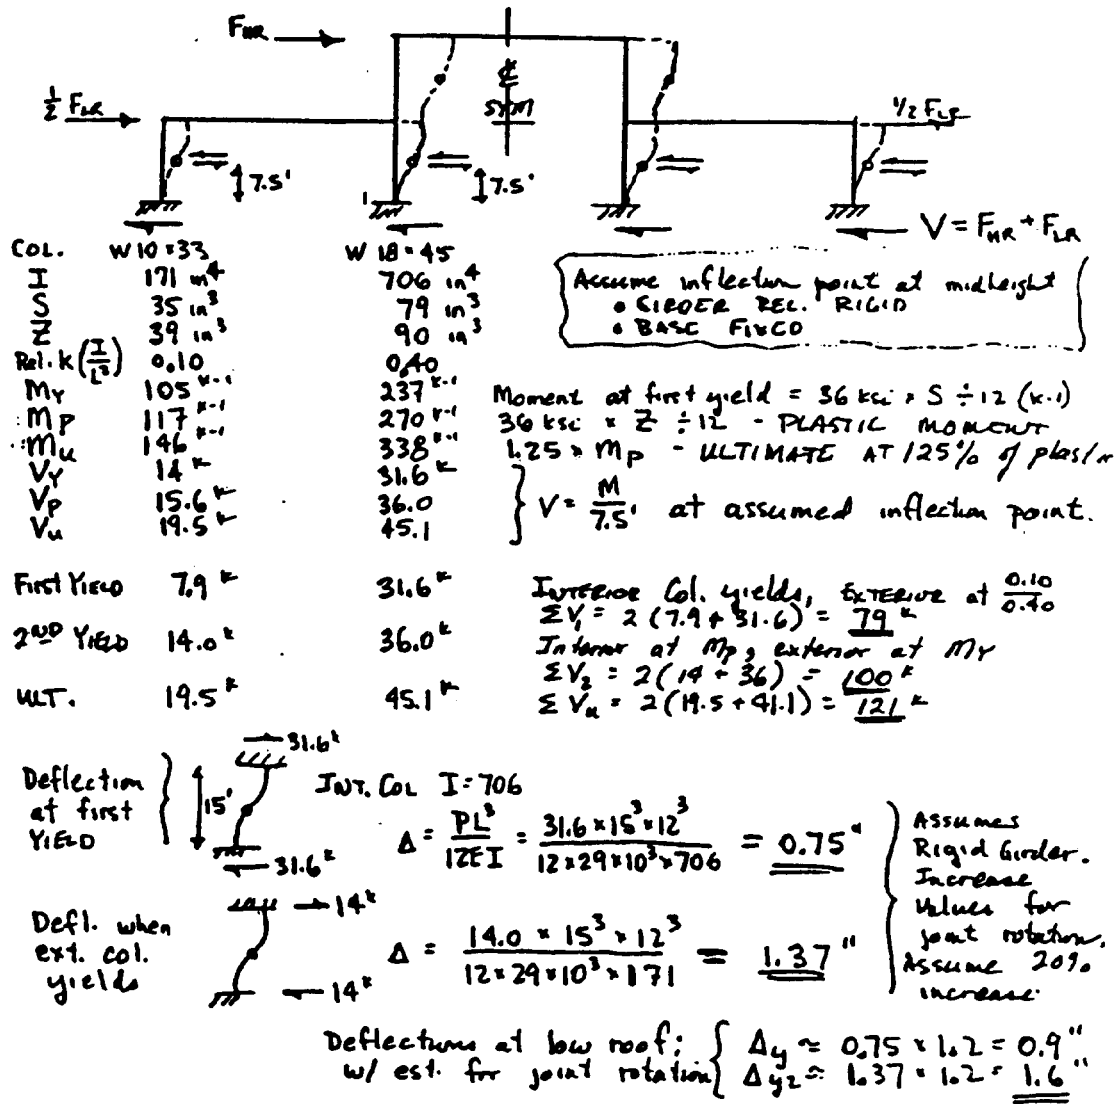 F_HR
½ F_LR
℄
SYM
1/2 F_LR
7.5'
7.5'
V = F_HR + F_LR
COL. W10×33 W18×45
I 171 in⁴ 706 in⁴
S 35 in³ 79 in³
Z 39 in³ 90 in³
Rel. K (I/L³) 0.10 0.40
M_Y 105 k-1 237 k-1
M_P 117 k-1 270 k-1
M_u 146 k-1 338 k-1
V_Y 14 k 31.6 k
V_P 15.6 k 36.0
V_u 19.5 k 45.1
Assume inflection point at midheight
• GIRDER REL. RIGID
• BASE FIXED
Moment at first yield = 36 ksi × S ÷ 12 (k-1)
36 ksi × Z ÷ 12 - PLASTIC MOMENT
1.25 × Mp - ULTIMATE AT 125% of plastic
V = M/7.5' at assumed inflection point.
First YIELD 7.9 k 31.6 k
INTERIOR Col. yields, EXTERIOR at 0.10/0.40
ΣV₁ = 2 (7.9 + 31.6) = 79 k
2ND YIELD 14.0 k 36.0 k
Interior at Mp, exterior at My
ΣV₂ = 2(14 + 36) = 100 k
ULT. 19.5 k 45.1 k
ΣVu = 2(19.5 + 41.1) = 121 k
Deflection
at first
YIELD
31.6 k
15'
31.6 k
INT. COL I = 706
Δ = PL³/12EI = 31.6 × 15³ × 12³/12 × 29 × 10³ × 706 = 0.75"
Defl. when
ext. col.
yields
14 k
14 k
Δ = 14.0 × 15³ × 12³/12 × 29 × 10³ × 171 = 1.37"
Assumes
Rigid Girder.
Increase
values for
joint rotation.
Assume 20%
increase
Deflections at low roof: Δy ≈ 0.75 × 1.2 = 0.9"
w/ est. for joint rotation Δy2 ≈ 1.37 × 1.2 = 1.6"